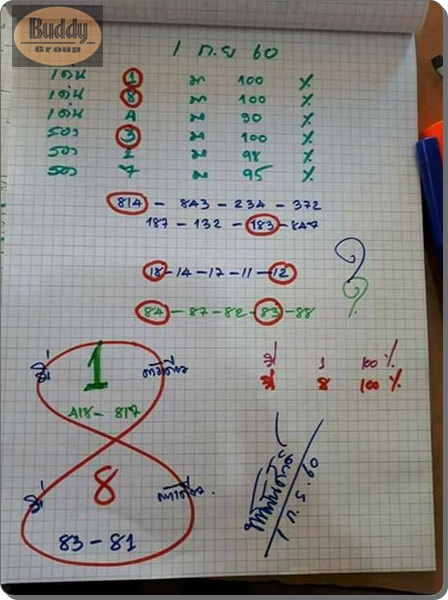 Buddy
Group
1 ก.ย 60
เด่น 1 มา 100 %
เด่น 8 มา 100 %
เด่น 4 มา 90 %
รอง 3 มา 100 %
รอง 2 มา 98 %
รอง 7 มา 95 %
814 - 843 - 234 - 372
187 - 132 - 183 - 847
18 - 14 - 17 - 11 - 12
84 - 87 - 82 - 83 - 88
มี 1 100 %
มี 8 100 %
มี 1 ตัวเดียว
418 - 817
มี 8 ตัวเดียว
83 - 81
1 ก.ย. 60